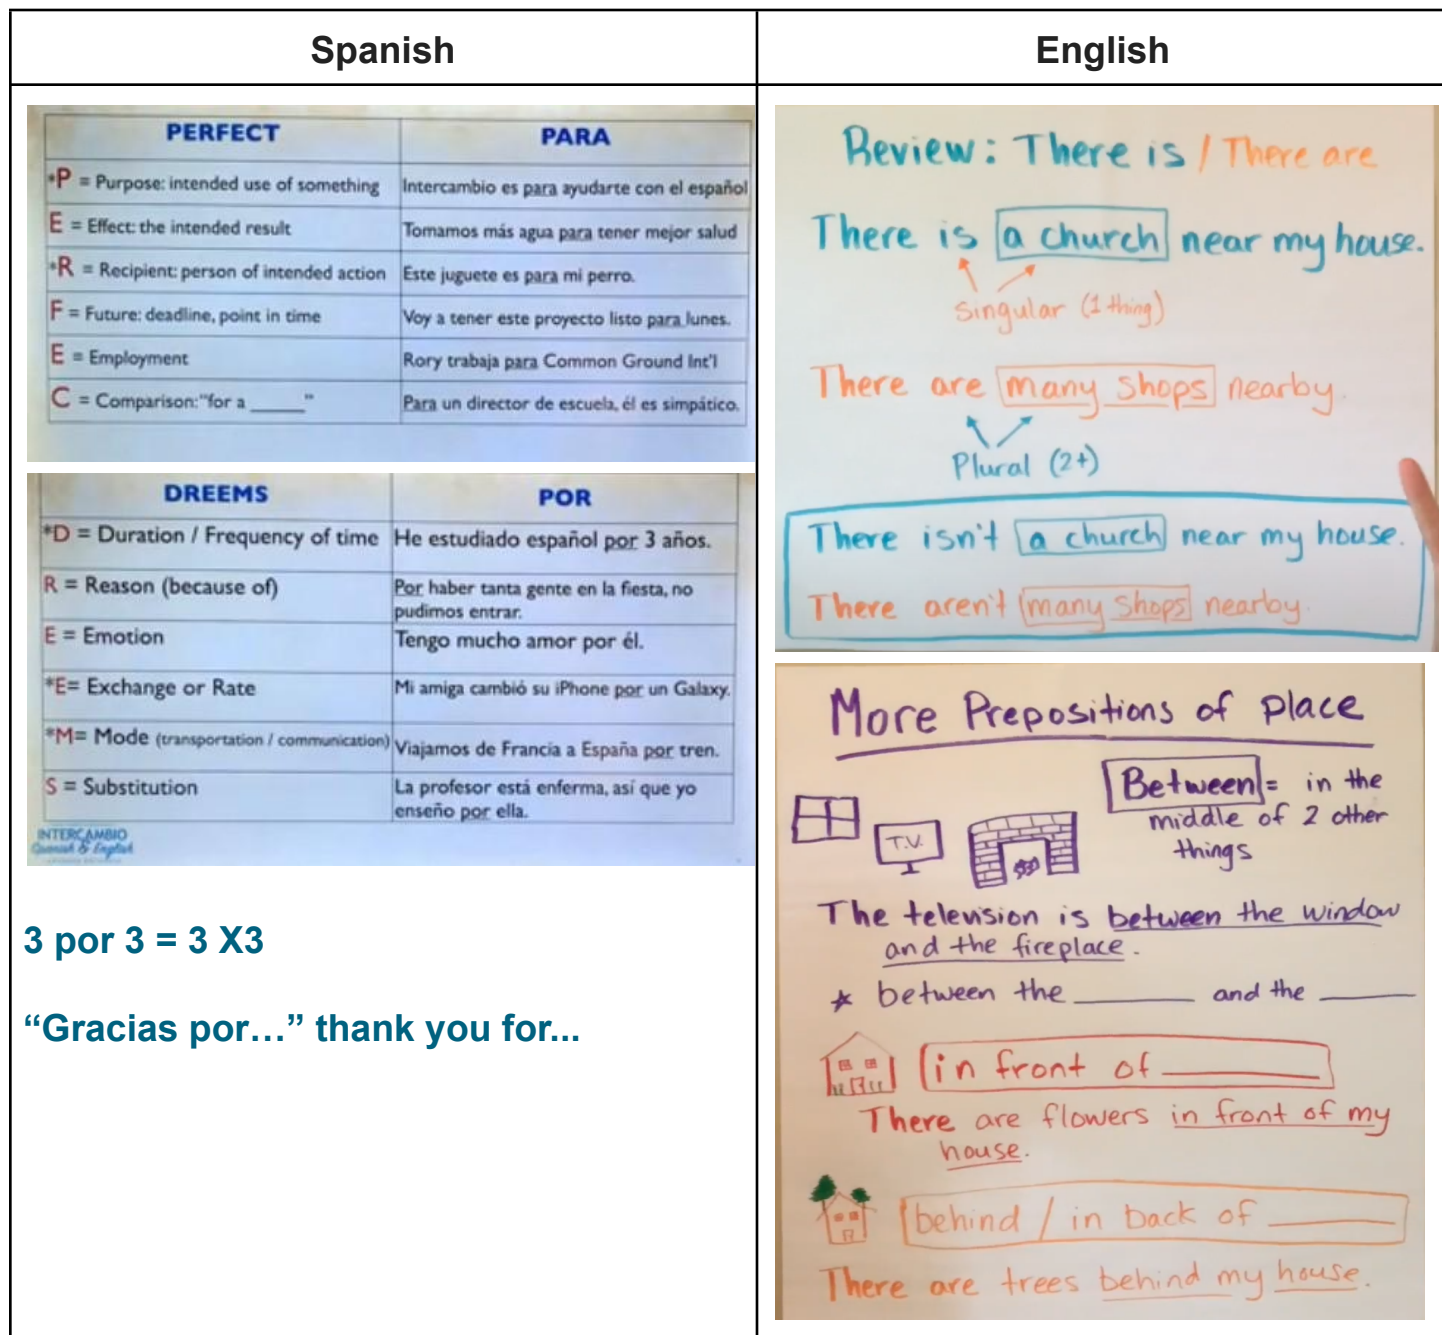 Spanish
English
PERFECT
PARA
*P = Purpose: intended use of something
Intercambio es para ayudarte con el español
E = Effect: the intended result
Tomamos más agua para tener mejor salud
*R = Recipient: person of intended action
Este juguete es para mi perro.
F = Future: deadline, point in time
Voy a tener este proyecto listo para lunes.
E = Employment
Rory trabaja para Common Ground Int'l
C = Comparison: "for a ______"
Para un director de escuela, él es simpático.
DREEMS
POR
*D = Duration / Frequency of time
He estudiado español por 3 años.
R = Reason (because of)
Por haber tanta gente en la fiesta, no
pudimos entrar.
E = Emotion
Tengo mucho amor por él.
*E= Exchange or Rate
Mi amiga cambió su iPhone por un Galaxy.
*M= Mode (transportation / communication)
Viajamos de Francia a España por tren.
S = Substitution
La profesor está enferma, así que yo
enseño por ella.
INTERCAMBIO
Spanish & English
3 por 3 = 3 X3
“Gracias por…” thank you for...
Review: There is / There are
There is a church near my house.
Singular (1 thing)
There are many shops nearby.
Plural (2+)
There isn't a church near my house.
There aren't many shops nearby.
More Prepositions of place
Between = in the
middle of 2 other
things
T.V.
The television is between the window
and the fireplace.
* between the ______ and the ______
in front of ______
There are flowers in front of my
house.
behind / in back of ______
There are trees behind my house.